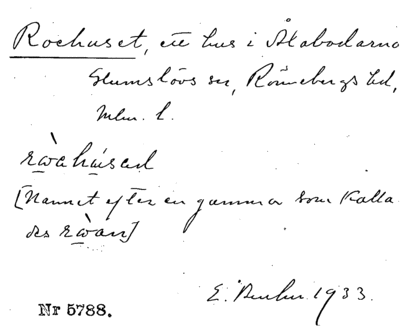 Rochuset, ett hus i Åkabodarna
Glumslövs sn, Rönnebergs hd,
Mlm. l.
ràahúsəd
[Namnet efter en gumma som kalla
des ràan]
E. 1933.
Nr 5788.